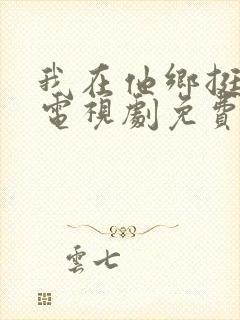 我在他鄉挺
電視劇免費
雲七